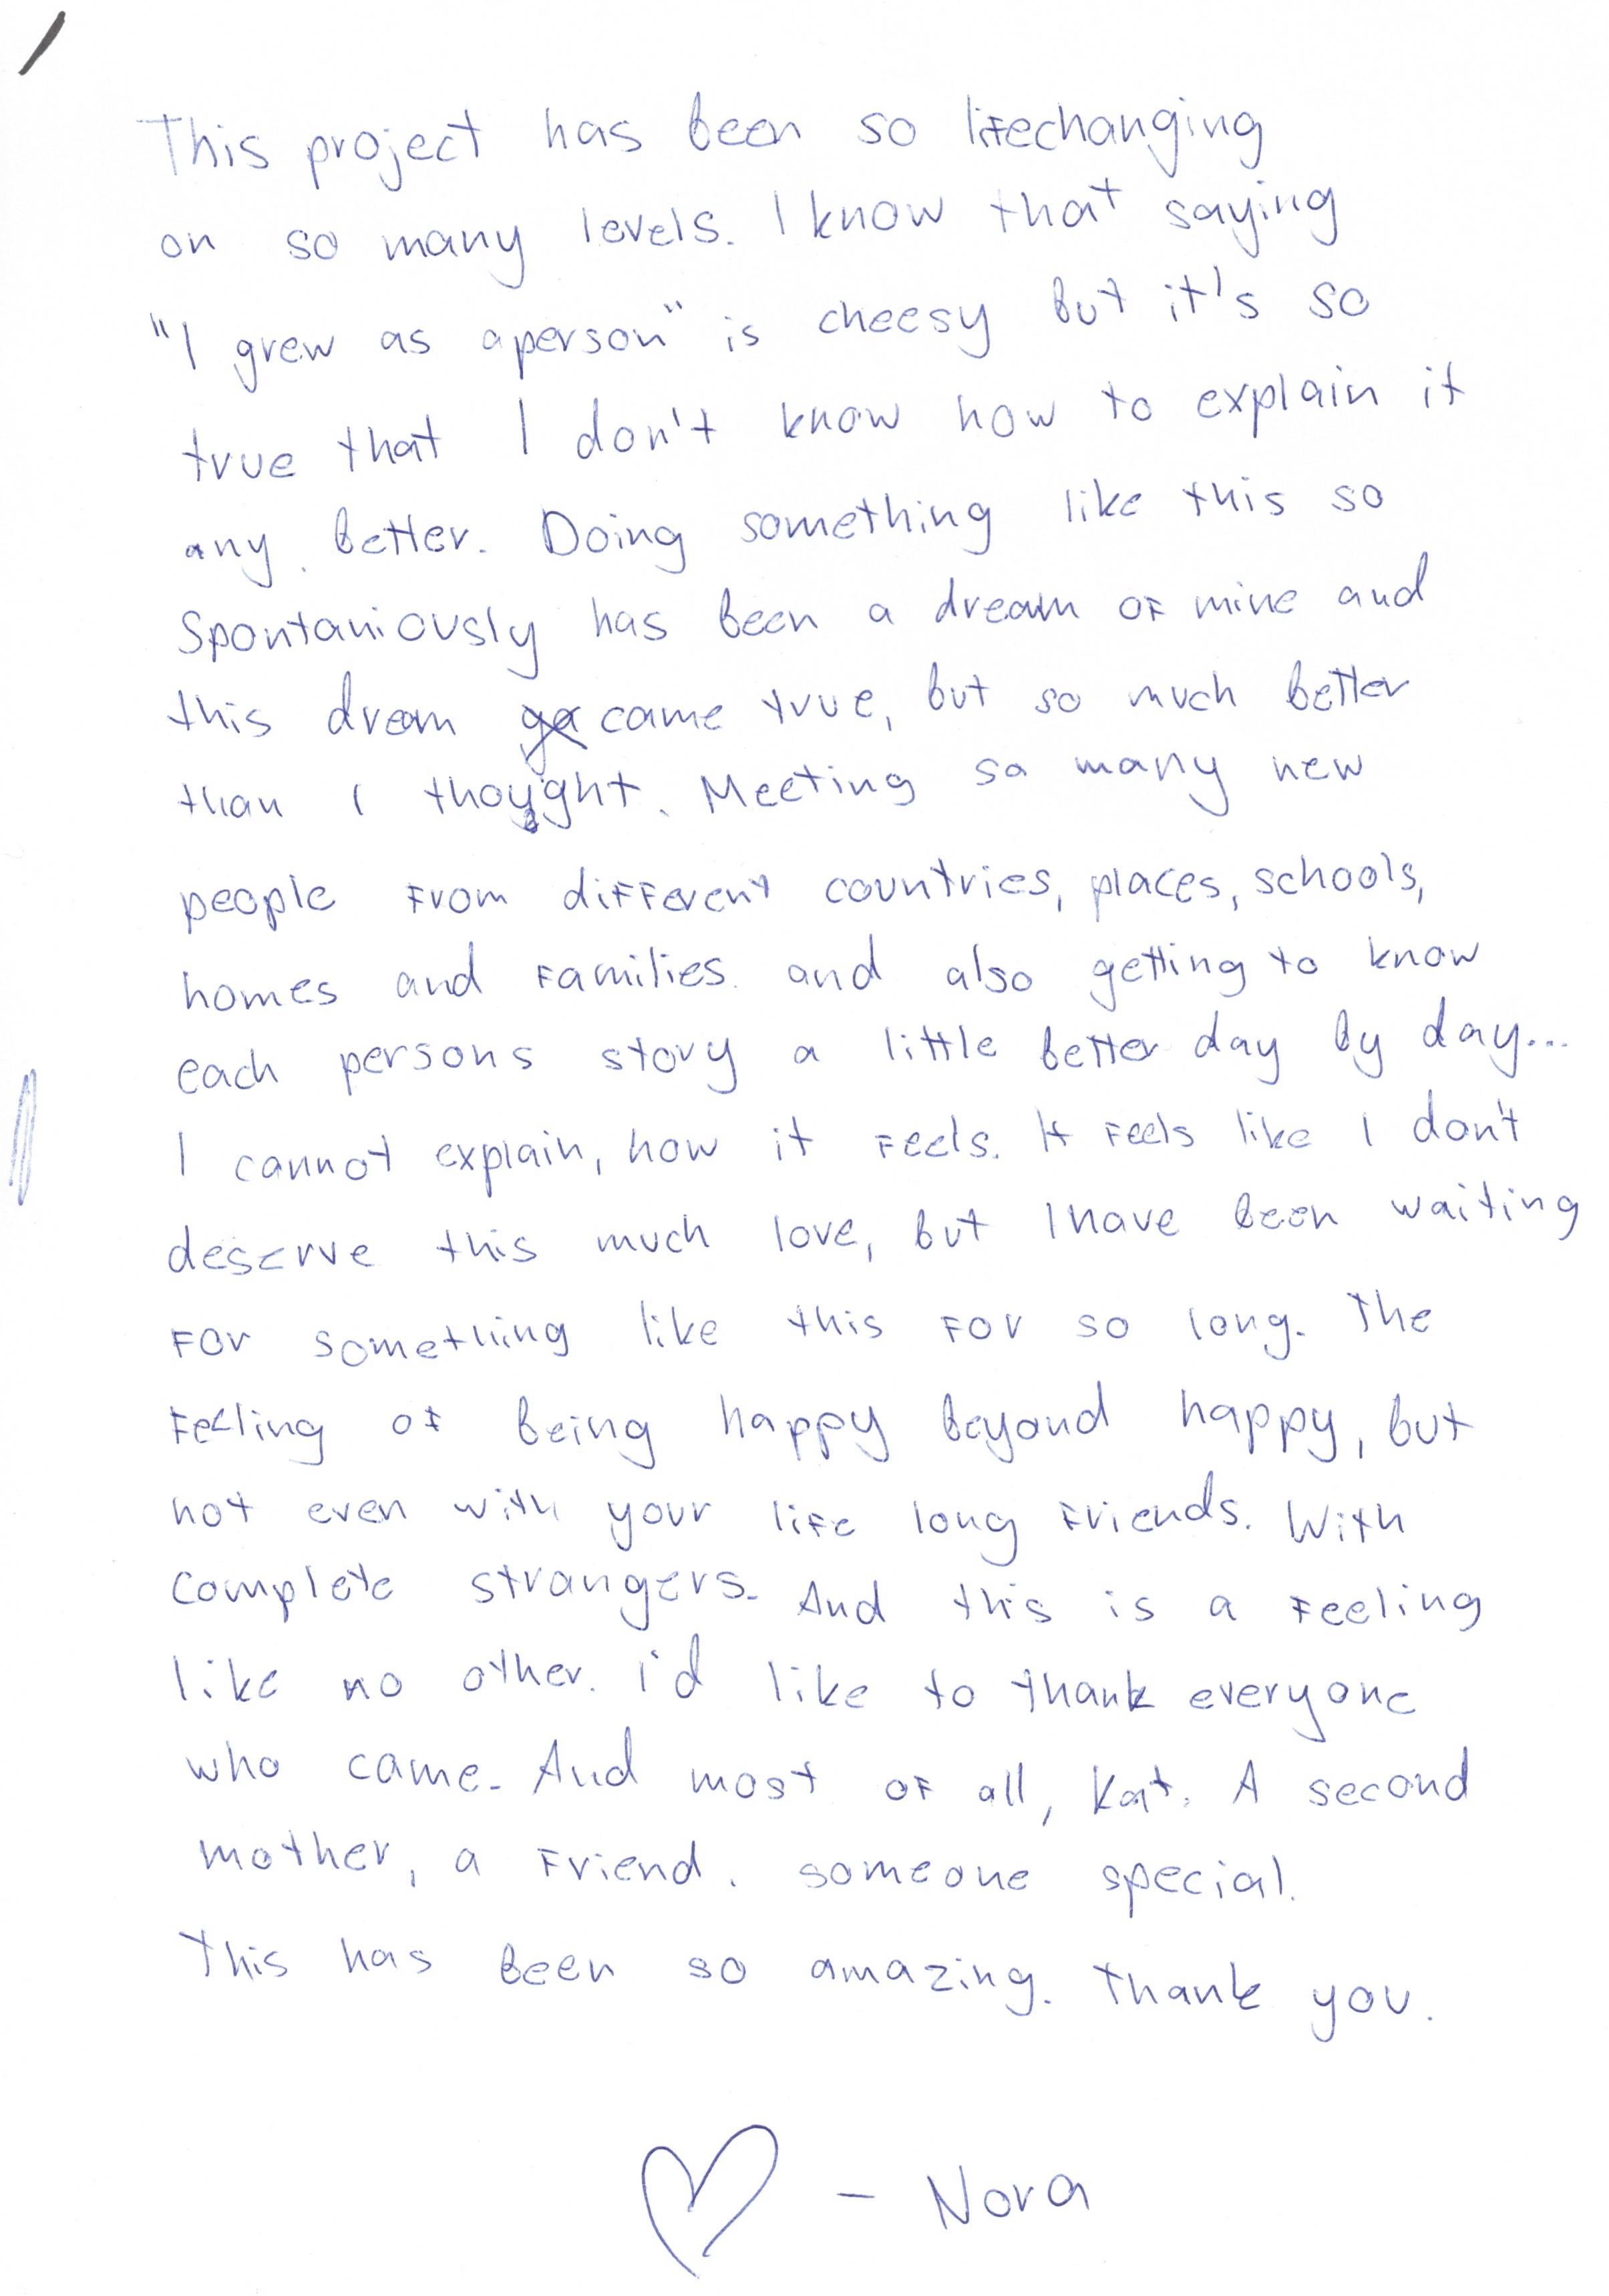 This project has been so lifechanging
on so many levels. I know that saying
"I grew as a person" is cheesy but it's so
true that I don't know how to explain it
any better. Doing something like this so
Spontaniously has been a dream of mine and
this dream came true, but so much better
than I thought. Meeting so many new
people from different countries, places, schools,
homes and families and also getting to know
each persons story a little better day by day...
I cannot explain, how it feels. It feels like I don't
deserve this much love, but I have been waiting
for something like this for so long. The
feeling of being happy beyond happy, but
not even with your life long friends. With
complete strangers. And this is a feeling
like no other. I'd like to thank everyone
who came. And most of all, Kat. A second
mother, a friend. someone special.
This has been so amazing. Thank you.
♡ - Nora